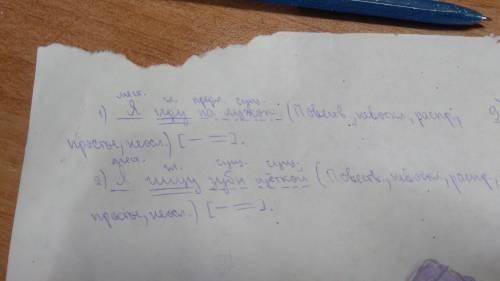 мест. гл. предл. сущ.
1) Я иду на лужок. (Повеств., невоскл., распр.,
простое, неосл.) [— =].
мест. гл. сущ. сущ.
2) Я чищу зубы щёткой (Повеств., невоскл., распр.,
простое, неосл.) [— =].